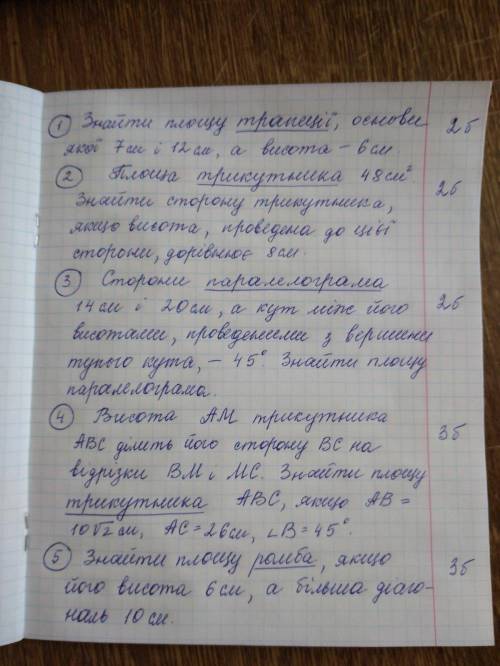 ① Знайти площу трапеції, основи 2б
якої 7см і 12см, а висота – 6см.
② Площа трикутника 48см². 2б
Знайти сторону трикутника,
якщо висота, проведена до цієї
сторони, дорівнює 8см.
③ Сторони паралелограма 2б
14см і 20см, а кут між його
висотами, проведеними з вершини
тупого кута, – 45°. Знайти площу
паралелограма.
④ Висота АМ трикутника 3б
АВС ділить його сторону ВС на
відрізки ВМ і МС. Знайти площу
трикутника АВС, якщо АВ =
10√2см, АС = 26см, ∠В = 45°.
⑤ Знайти площу ромба, якщо 3б
його висота 6см, а більша діаго-
наль 10см.